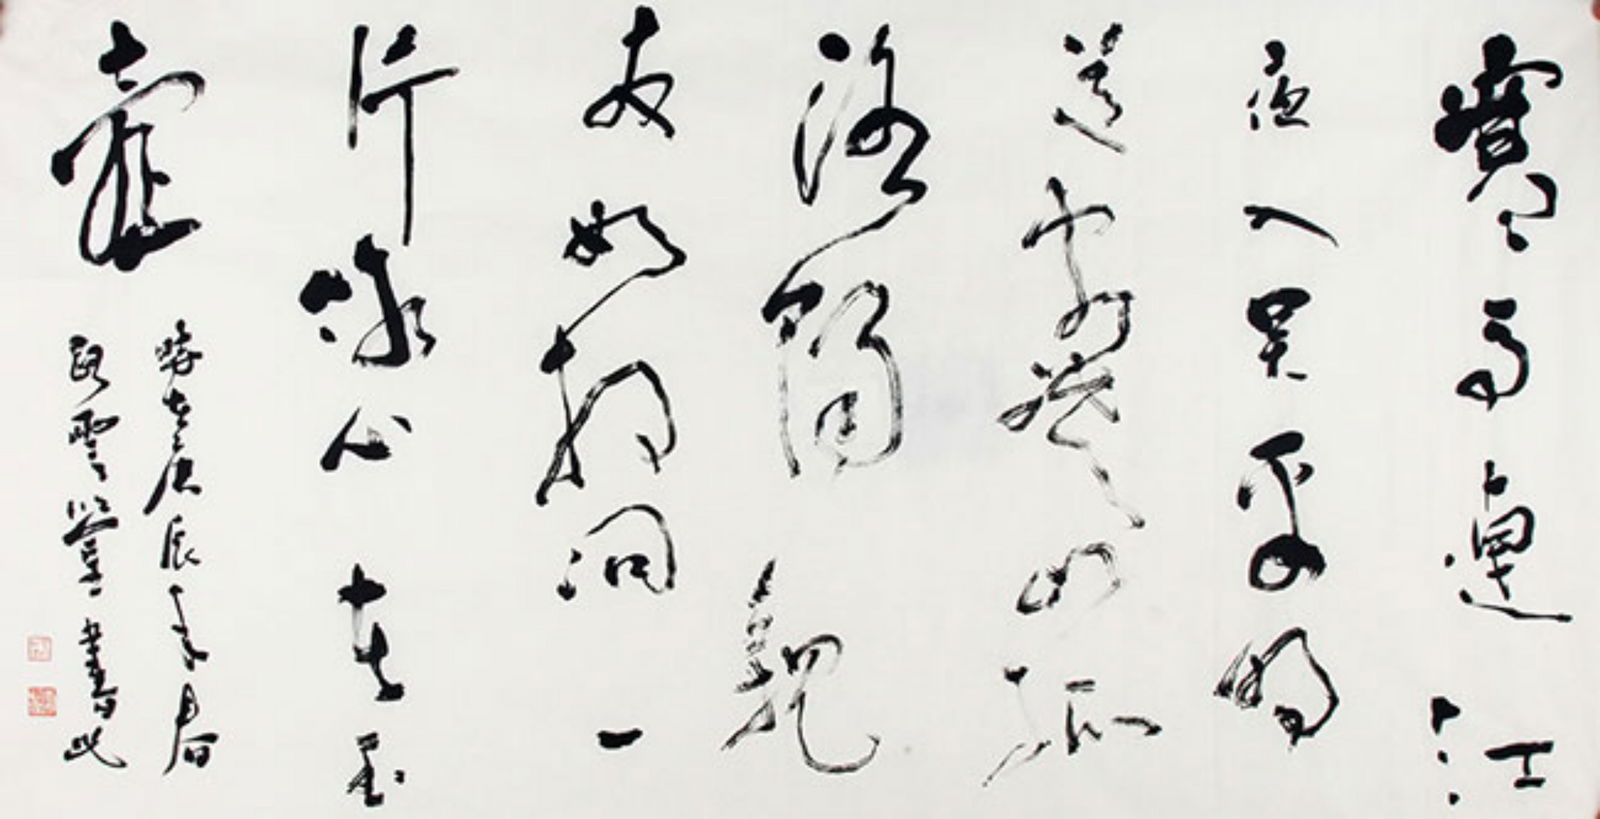 寒雨連江
夜入吳平明
送客楚山孤
洛陽親
友如相問一
片冰心在玉
壺
時在庚辰年春
雲 書